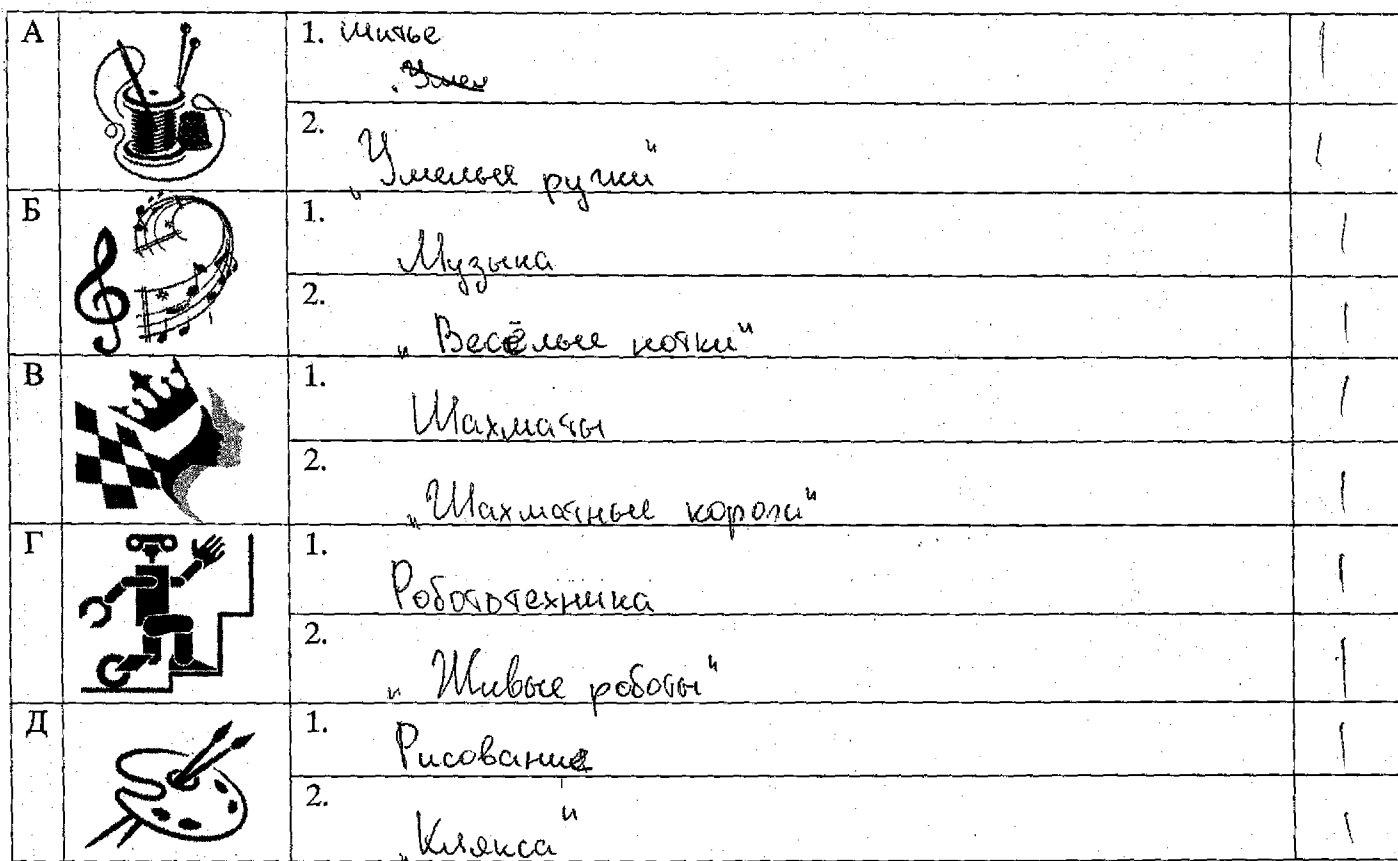 А
1. Шитье
1
2. „Умелые ручки"
1
Б
1. Музыка
1
2. „Весёлые нотки"
1
В
1. Шахматы
1
2. „Шахматные короли"
1
Г
1. Робототехника
1
2. „Живые роботы"
1
Д
1. Рисование
1
2. „Клякса"
1